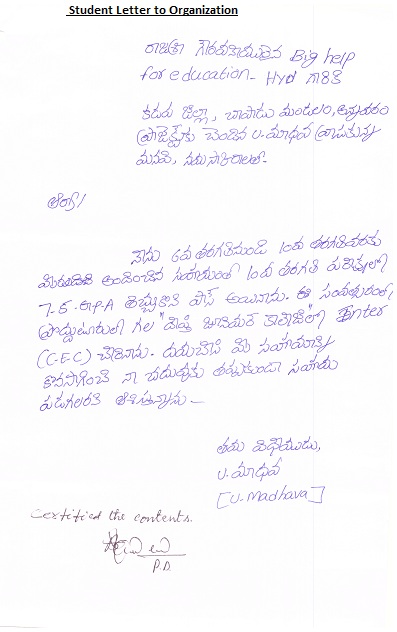 Student Letter to Organization
గౌరవనీయులైన Big help
for education - Hyd గారికి
కడప జిల్లా, చాపాడు మండలం,
ప్రాజెక్టుకు చెందిన U. మాధవ వ్రాయుచున్న
మనవి,
ఆర్యా!
నేను 6వ తరగతినుండి 10వ తరగతివరకు
అందించిన సహాయంతో 10వ తరగతి పరీక్షలో
7.5 తెచ్చుకొని పాస్ అయినాను. ఈ సంవత్సరంలో
ప్రొద్దుటూరులో గల జూనియర్ కాలేజీలో Inter
(C.E.C) చేరినాను. దయచేసి మీ సహాయాన్ని
కొనసాగించి నా చదువుకు సహాయ
పడగలరని ఆశిస్తున్నాను -
తమ విధేయుడు,
U. మాధవ
[U. Madhava]
Certified the contents.
P.D.